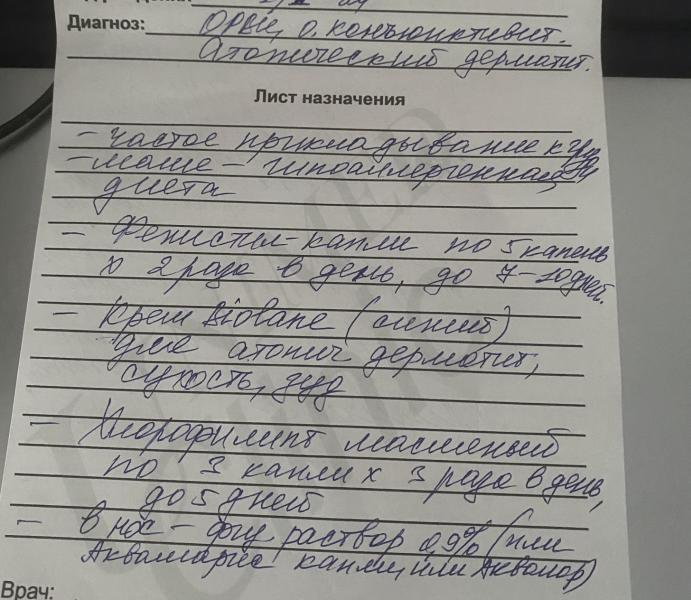 Диагноз: ОРВИ, о. конъюнктивит.
Атопический дерматит.
Лист назначения
- частое прикладывание к груди
- маме - гипоаллергенная
диета
- Фенистил-капли по 5 капель
х 2 раза в день, до 7-10 дней.
- Крем Biolane (синий)
для атопич дерматит,
сухость, зуд
- Хлорофиллипт масляный
по 3 капли х 3 раза в день,
до 5 дней
- в нос - физ раствор 0,9% (или
Аквамарис капли, или Аквалор)
Врач: